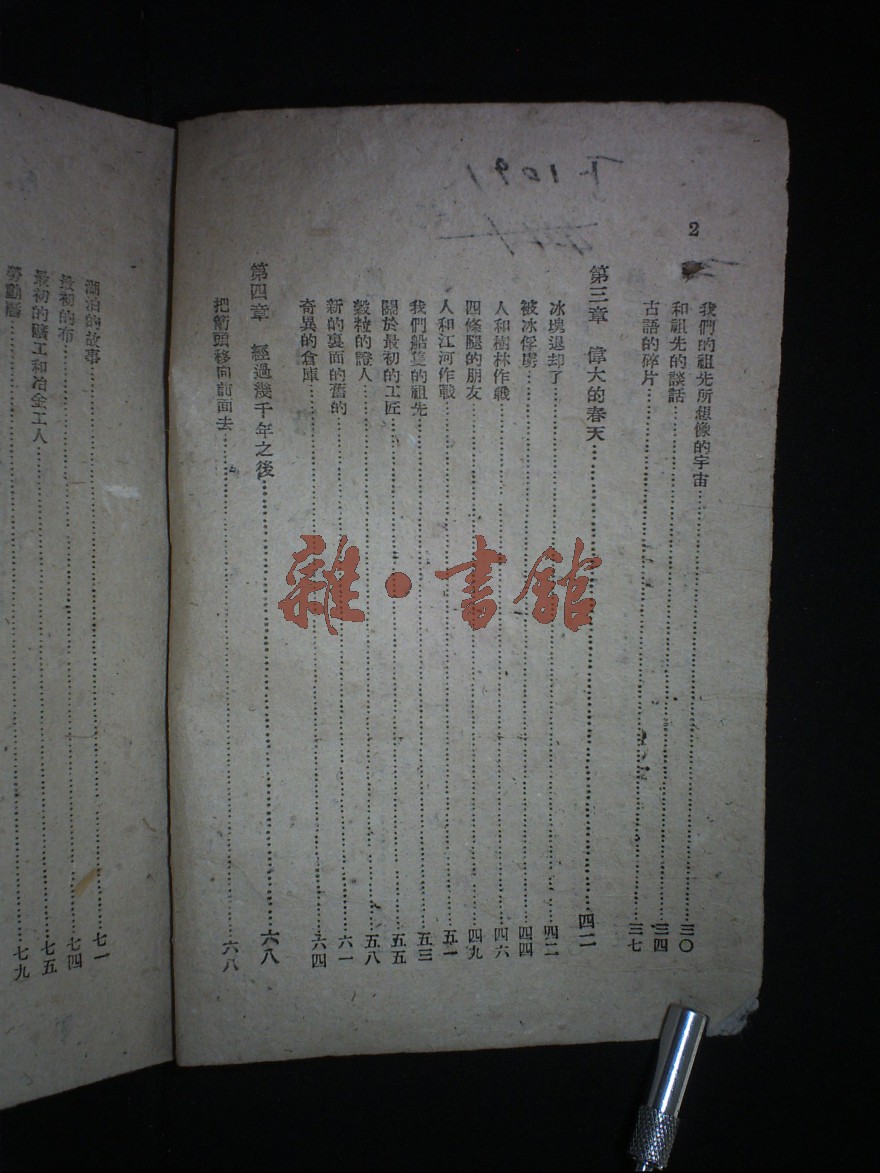 2
我們的祖先所想像的宇宙……三〇
和祖先的談話……三四
古語的碎片……三七
第三章 偉大的春天……四二
冰塊退却了……四二
被冰俘虜……四四
人和樹林作戰……四六
四條腿的朋友……四九
人和江河作戰……五一
我們船隻的祖先……五三
關於最初的工匠……五五
穀粒的證人……五八
新的裏面的舊的……六一
奇異的倉庫……六四
第四章 經過幾千年之後……六八
把箭頭移向前面去……六八
湖泊的故事……七一
最初的布……七四
最初的礦工和冶金工人……七五
勞動曆……七九
雜·書館